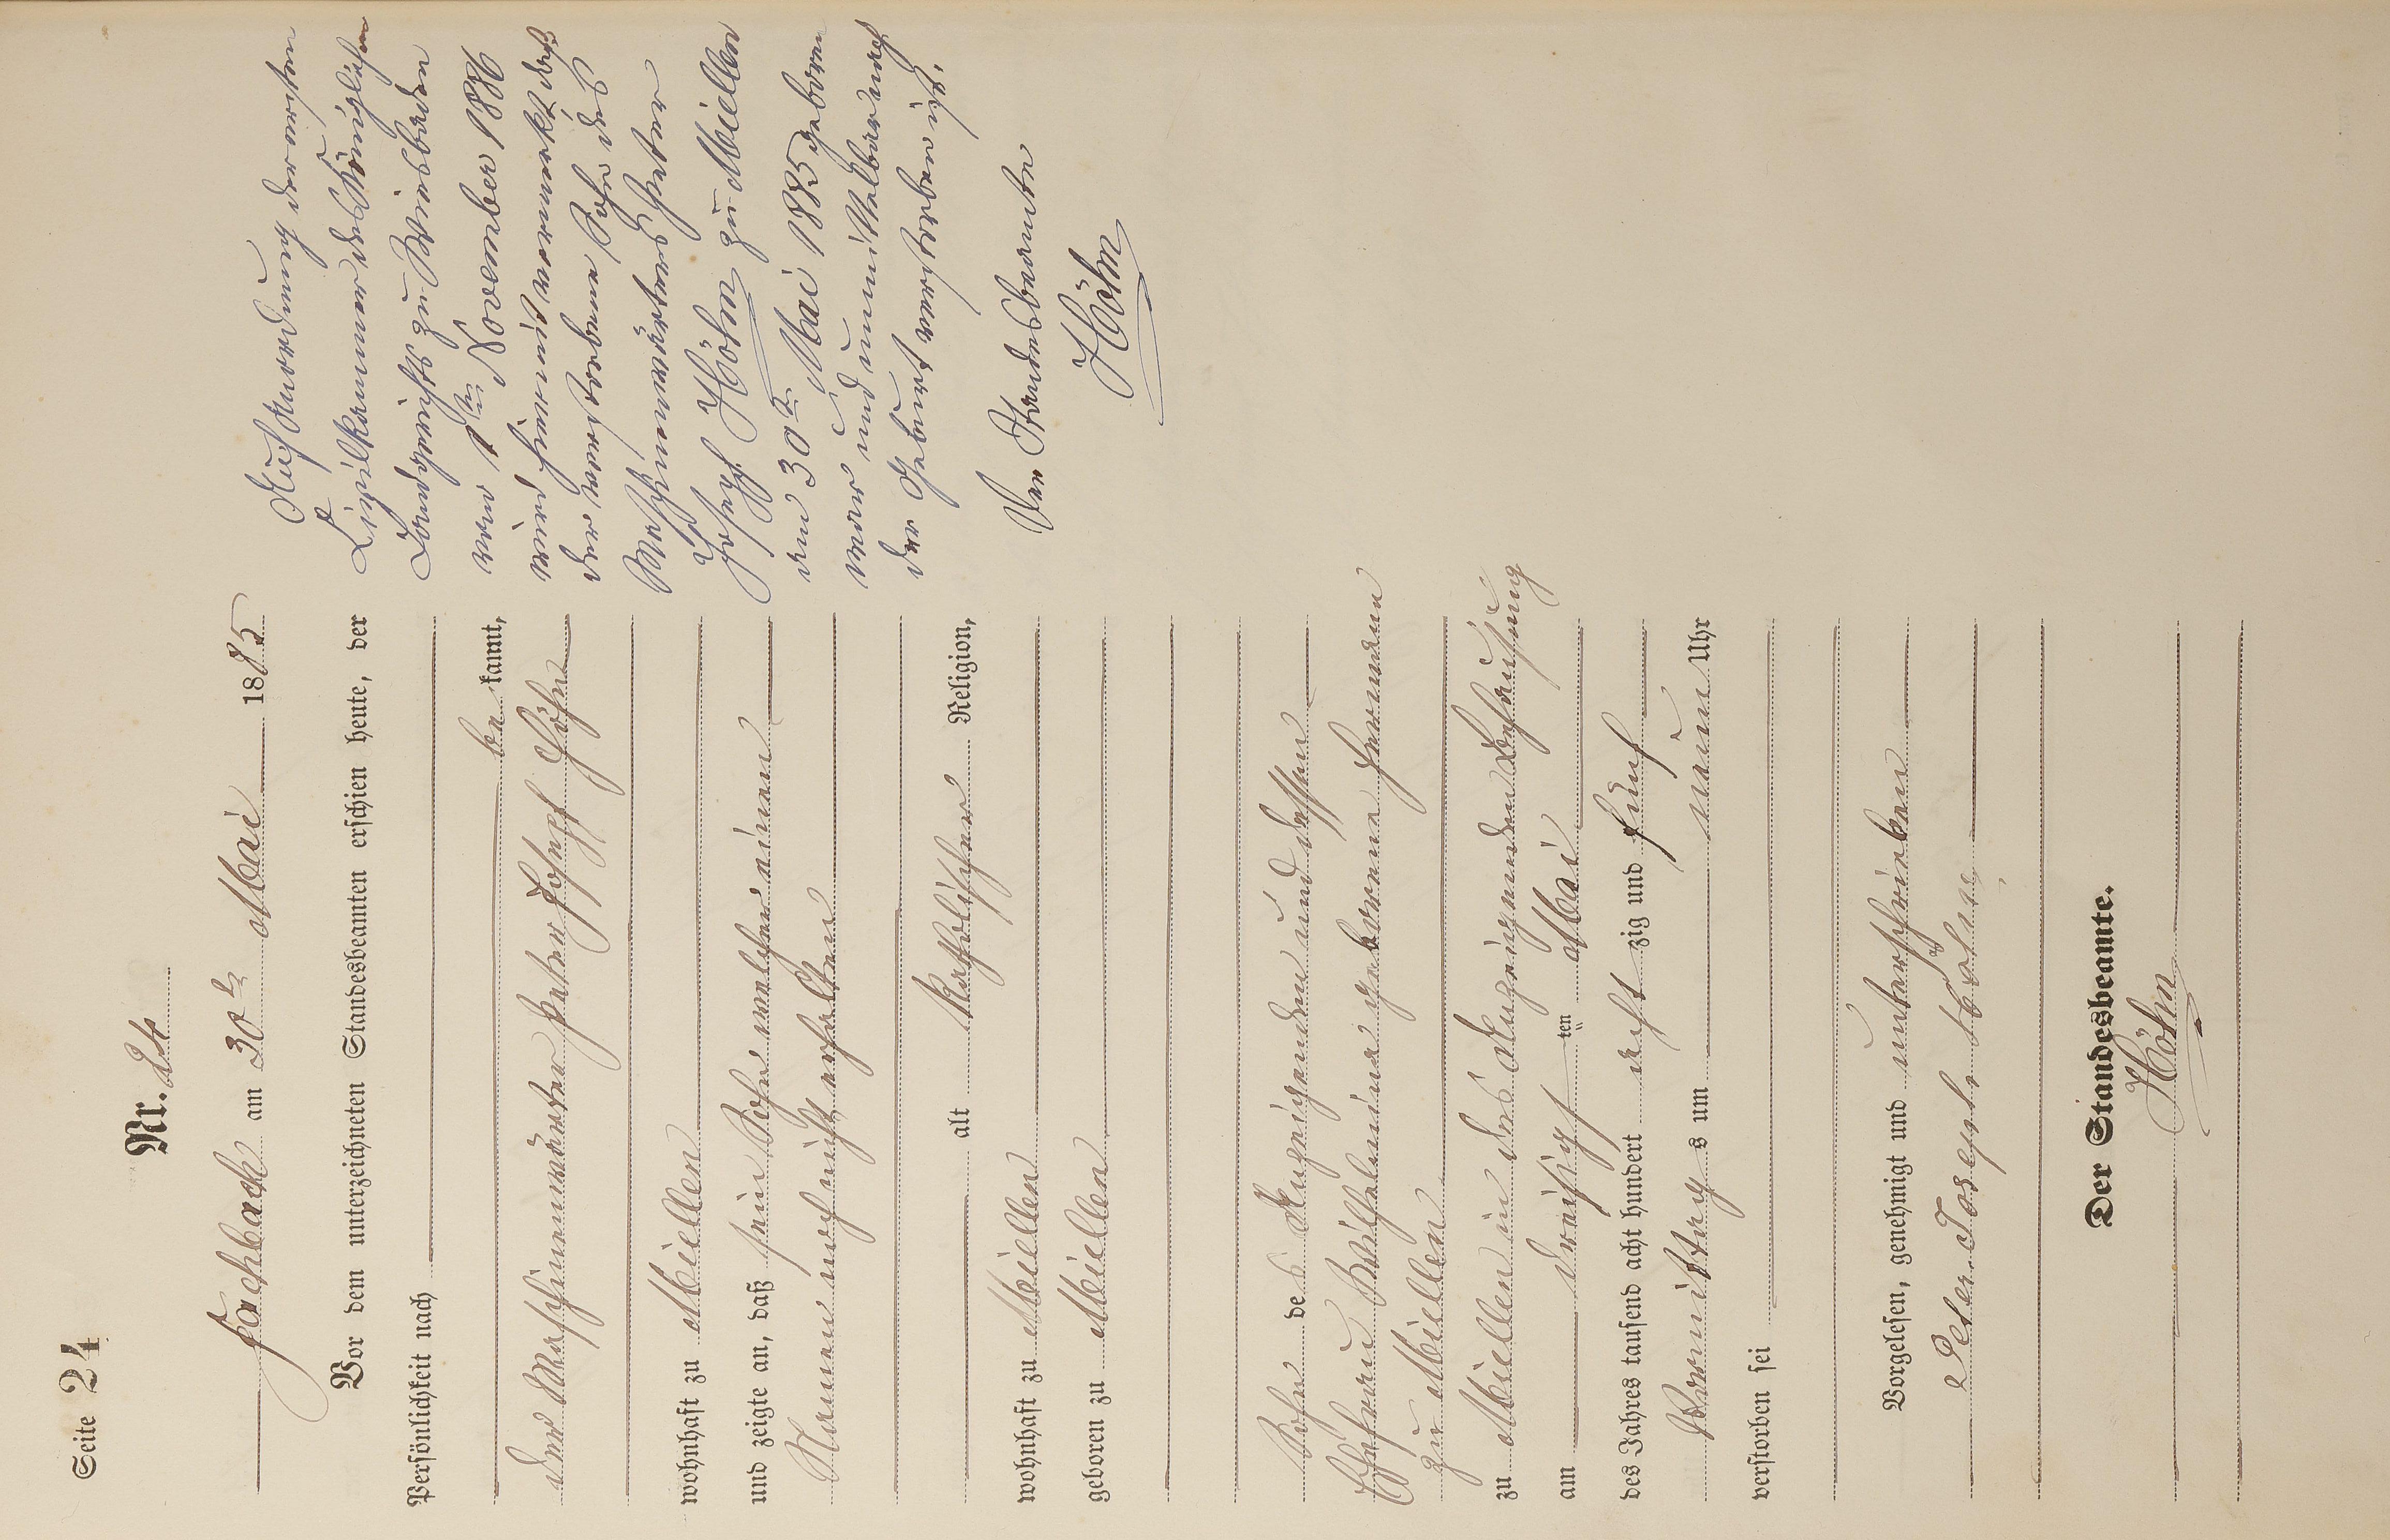 Seite 24
Nr. 24
Fachbach am 30ten Mai 1885
Vor dem unterzeichneten Standesbeamten erschien heute, der
Persönlichkeit nach
be kannt,
der Maschinenwärter Peter Joseph Höhn
wohnhaft zu Miellen
und zeigte an, daß sein Sohn welcher einen
Namen noch nicht erhalten
alt katholischer Religion,
wohnhaft zu Miellen
geboren zu Miellen
Sohn des Anzeigenden und dessen
Ehefrau Wilhelmine geborene Hermann
zu Miellen
zu Miellen in des Anzeigenden Behausung
am dreißigsten Mai
des Jahres tausend acht hundert acht zig und fünf
Vormittags um neun Uhr
verstorben sei
Vorgelesen, genehmigt und unterschrieben
Peter Joseph Höhn
Der Standesbeamte.
Höhn
Auf Anordnung der ersten
Civilkammer des Königlichen
Landgerichts zu Wiesbaden
vom 1ten November 1886
wird hiermit vermerkt daß
der verstorbene Sohn des
Maschinenwärters Peter
Joseph Höhn zu Miellen
am 30ten Mai 1885 geboren
war und unmittelbar nach
der Geburt verstorben ist.
Der Standesbeamte
Höhn